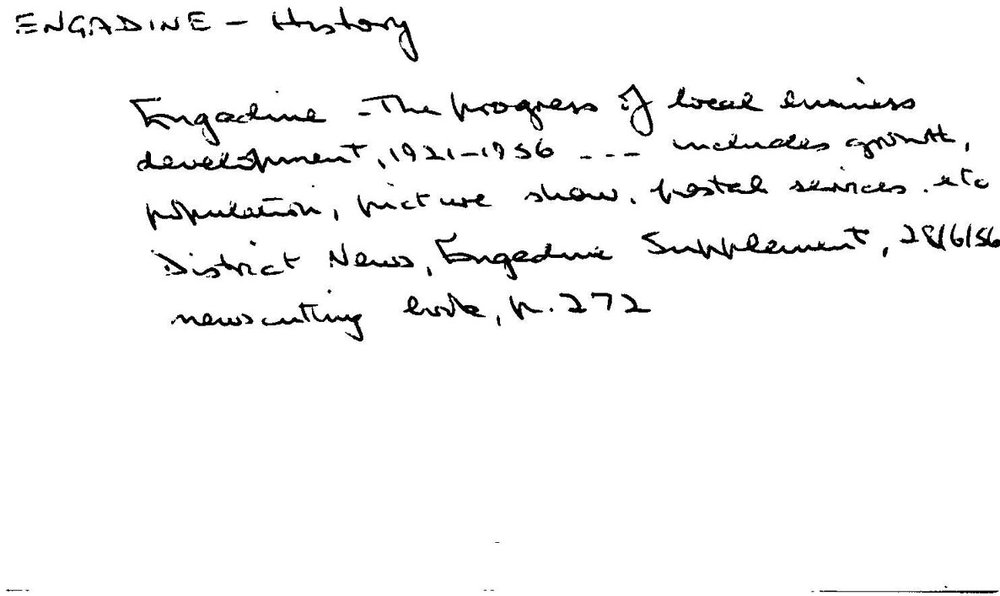 ENGADINE - History
Engadine - The progress of local business
development, 1921-1956 --- includes growth,
population, picture show, postal services. etc
District News, Engadine Supplement, 28/6/56
newscutting book, p. 272